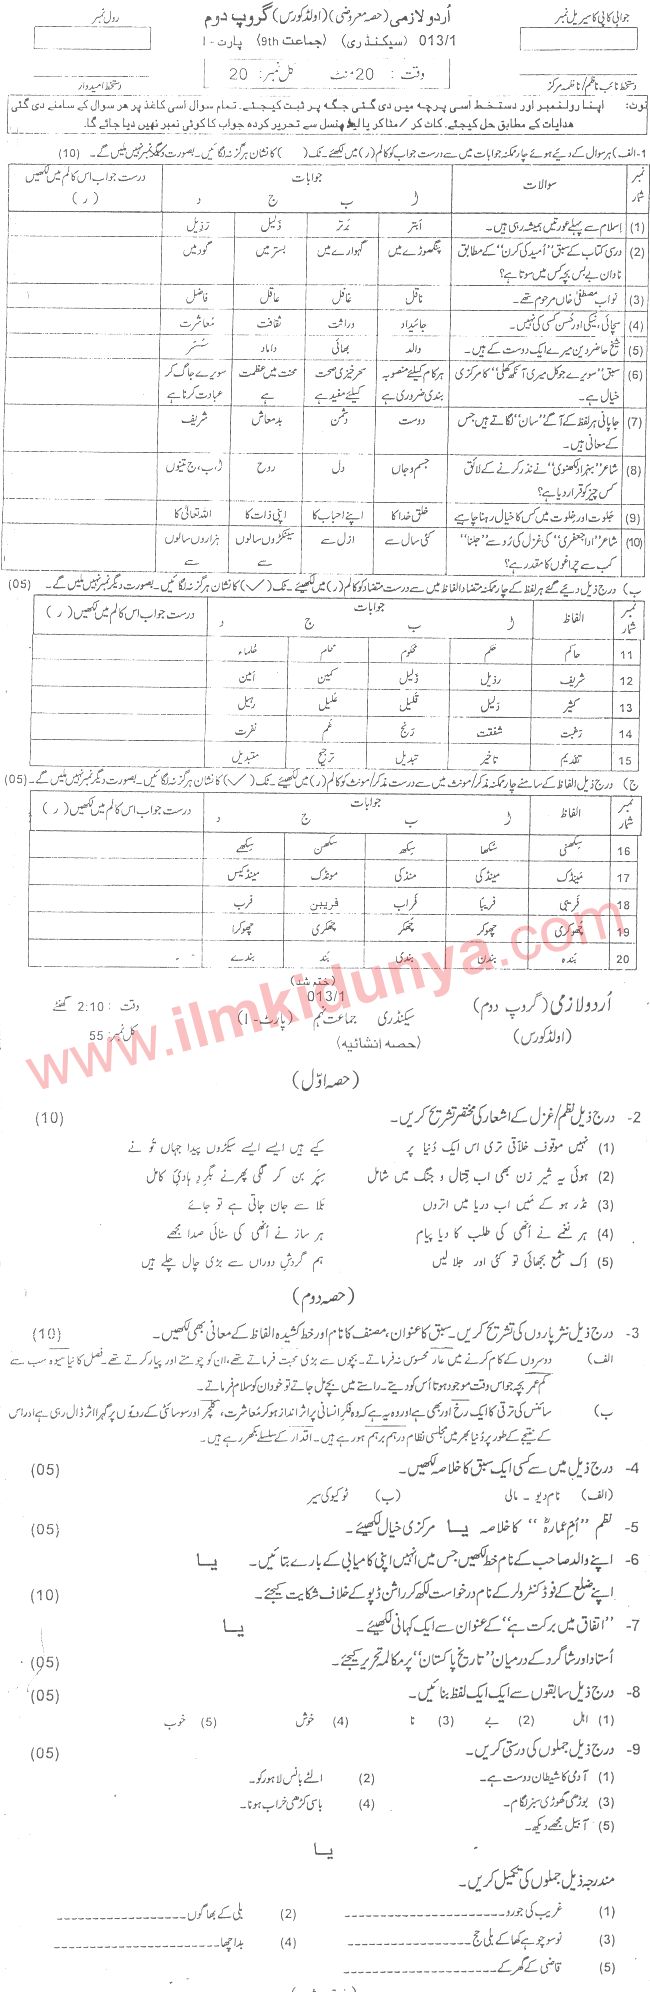 جوابی کاپی کا سیریل نمبر
اُردو لازمی (حصہ معروضی) (اولڈ کورس) گروپ دوم
رول نمبر
013/1 (سیکنڈری) (جماعت 9th) پارٹ - I
وقت : 20 منٹ کل نمبر: 20
دستخط نائب ناظم / ناظمہ مرکز
دستخط امیدوار
نوٹ: اپنا رولنمبر اور دستخط اسی پرچہ میں دی گئی جگہ پر ثبت کیجئے۔ تمام سوال اسی کاغذ پر ھر سوال کے سامنے دی گئی
ھدایات کے مطابق حل کیجئے۔ کاٹ کر / مٹا کر یا لیڈ پنسل سے تحریر کردہ جواب کا کوئی نمبر نھیں دیا جائے گا۔
1- الف) ہر سوال کے دیے ہوئے چار ممکنہ جوابات میں سے درست جواب کو کالم (ر) میں لکھئے۔ ٹک ( ) کا نشان ہرگز نہ لگائیں۔ بصورت دیگر نمبر نہیں ملیں گے۔ (10)
نمبر شمار سوالات جوابات درست جواب اس کالم میں لکھیں
ا ب ج د (ر)
(1) اسلام سے پہلے عورتیں ہمیشہ رہی ہیں۔ اَبتر بَرتر ذَلیل رَذِیل
(2) درسی کتاب کے سبق "اُمید کی کرن" کے مطابق پنگھوڑے میں گہوارے میں بستر میں گود میں
نادان بے بس بچہ کس میں سوتا ہے؟
(3) نواب مصطفیٰ خاں مرحوم تھے۔ ناقل غافل عاقل فاضل
(4) سچائی، نیکی اور حُسن کسی کی نہیں۔ جائیداد وراثت ثقافت مُعاشرت
(5) شیخ حاضر دین میرے ایک دوست کے ہیں۔ والد بھائی داماد سُسر
(6) سبق "سویرے جو کل میری آنکھ کھلی" کا مرکزی ہر کام کیلئے منصوبہ سحر خیزی صحت محنت میں عظمت سویرے جاگ کر
خیال ہے۔ بندی ضروری ہے کیلئے مفید ہے ہے عبادت کرنا ہے
(7) جاپانی ہر لفظ کے آگے "سان" لگاتے ہیں جس دوست دشمن بدمعاش شریف
کے معانی ہیں۔
(8) شاعر "بہزاد لکھنوی" نے نذر کرنے کے لائق جسم و جاں دل روح ا، ب، ج تینوں
کس چیز کو قرار دیا ہے؟
(9) جلوت اور خلوت میں کس کا خیال رہنا چاہیے خلق خدا کا اپنے احباب کا اپنی ذات کا اللہ تعالیٰ کا
(10) شاعر "ادا جعفری" کی غزل کی رُو سے "جلنا" کئی سال سے ازل سے سینکڑوں سالوں ہزاروں سالوں
کب سے چراغوں کا مقدر ہے؟ سے سے
ب) درج ذیل دیئے گئے ہر لفظ کے چار ممکنہ متضاد الفاظ میں سے درست متضاد کو کالم (ر) میں لکھیئے۔ ٹک (✓) کا نشان ہرگز نہ لگائیں۔ بصورت دیگر نمبر نہیں ملیں گے۔ (05)
نمبر شمار الفاظ جوابات درست جواب اس کالم میں لکھیں (ر)
ا ب ج د
11 حاکم حکم محکوم محام حُکماء
12 شریف رذیل ذلیل کمین اَمین
13 کثیر ذلیل قلیل علیل رہیل
14 رَغبت شفقت رَنج غم نفرت
15 تقدیم تاخیر تبدیل ترجیح متبدیل
ج) درج ذیل الفاظ کے سامنے چار ممکنہ مذکر/مونث میں سے درست مذکر/مونث کو کالم (ر) میں لکھیئے۔ ٹک (✓) کا نشان ہرگز نہ لگائیں۔ بصورت دیگر نمبر نہیں ملیں گے۔ (05)
نمبر شمار الفاظ جوابات درست جواب اس کالم میں لکھیں (ر)
ا ب ج د
16 سِکھنی سُکھا سِکھ سکھن سِکھے
17 مَینڈک مینڈکی منڈکی مونڈک مینڈکیس
18 فَریبی فَریبَا فَراب فریبن فَرب
19 چھوکری چھوکر چھکر چھکری چھوکرا
20 بَندہ بندن بندی بَند بندے
(ختم شد)
www.ilmkidunya.com
013/1
اُردو لازمی (گروپ دوم) سیکنڈری جماعت نہم (پارٹ - I) وقت : 2:10 گھنٹے
(اولڈ کورس) حصہ انشائیہ) کل نمبر: 55
(حصہ اوّل)
2- درج ذیل نظم/غزل کے اشعار کی مختصر تشریح کریں۔ (10)
(1) نہیں موقوف خلاّقی تری اس ایک دُنیا پر کیے ہیں ایسے ایسے سیکڑوں پیدا جہاں تُو نے
(2) ہوئی یہ شیر زن بھی اب قتال و جنگ میں شامل سِپَر بن کر لگی پھرنے بگردِ ہادیٔ کامل
(3) نڈر ہو کے مَیں اب دریا میں اتروں بَلا سے جان جاتی ہے تو جائے
(4) ہر نغمے نے اُنھی کی طلب کا دیا پیام ہر ساز نے اُنھی کی سنائی صدا مجھے
(5) اِک شمع بجھائی تو کئی اور جلا لیں ہم گردشِ دوراں سے بڑی چال چلے ہیں
(حصہ دوم)
3- درج ذیل نثر پاروں کی تشریح کریں۔ سبق کا عنوان، مصنف کا نام اور خط کشیدہ الفاظ کے معانی بھی لکھیں۔ (10)
الف) دوسروں کے کام کرنے میں عار محسوس نہ فرماتے۔ بچوں سے بڑی محبت فرماتے تھے، ان کو چومتے اور پیار کرتے تھے۔ فصل کا نیا میوہ سب سے
کم عمر بچہ جو اس وقت موجود ہوتا اُس کو دیتے۔ راستے میں بچے مل جاتے تو خود ان کو سلام فرماتے۔
ب) سائنس کی ترقی کا ایک رُخ اور بھی ہے اور وہ یہ ہے کہ وہ فکرِ انسانی پر اثر انداز ہو کر مُعاشرت، کلچر اور سوسائٹی کے رویّوں پر گہرا اثر ڈال رہی ہے اور اس
کے نتیجے کے طور پر دُنیا بھر میں مجلسی نظام درہم برہم ہو رہے ہیں۔ اقدار کے سلسلے بکھر رہے ہیں۔
4- درج ذیل میں سے کسی ایک سبق کا خلاصہ لکھیں۔ (05)
(الف) نام دیو - مالی (ب) ٹوکیو کی سیر
5- نظم "اُمِ عمارہؓ" کا خلاصہ یا مرکزی خیال لکھیئے۔ (05)
6- اپنے والد صاحب کے نام خط لکھیں جس میں انہیں اپنی کامیابی کے بارے بتائیں۔ یا
اپنے ضلع کے فوڈ کنٹرولر کے نام درخواست لکھ کر راشن ڈپو کے خلاف شکایت کیجئے۔ (10)
7- "اتفاق میں برکت ہے" کے عنوان سے ایک کہانی لکھیئے۔ یا
اُستاد اور شاگرد کے درمیان "تاریخِ پاکستان" پر مکالمہ تحریر کیجئے۔ (05)
8- درج ذیل سابقوں سے ایک ایک لفظ بنائیں۔ (05)
(1) اہل (2) بے (3) نا (4) خوش (5) خوب
9- درج ذیل جملوں کی درستی کریں۔ (05)
(1) آدمی کا شیطان دوست ہے۔ (2) الٹے بانس لاہور کو۔
(3) بوڑھی گھوڑی سبز لگام۔ (4) باسی کڑھی خراب ہونا۔
(5) آ بیل مجھے دیکھ۔
یا
مندرجہ ذیل جملوں کی تکمیل کریں۔
(1) غریب کی جورو۔ (2) بلی کے بھاگوں
(3) نو سو چوہے کھا کے بلی حج (4) بد اچھا
(5) قاضی کے گھر کے